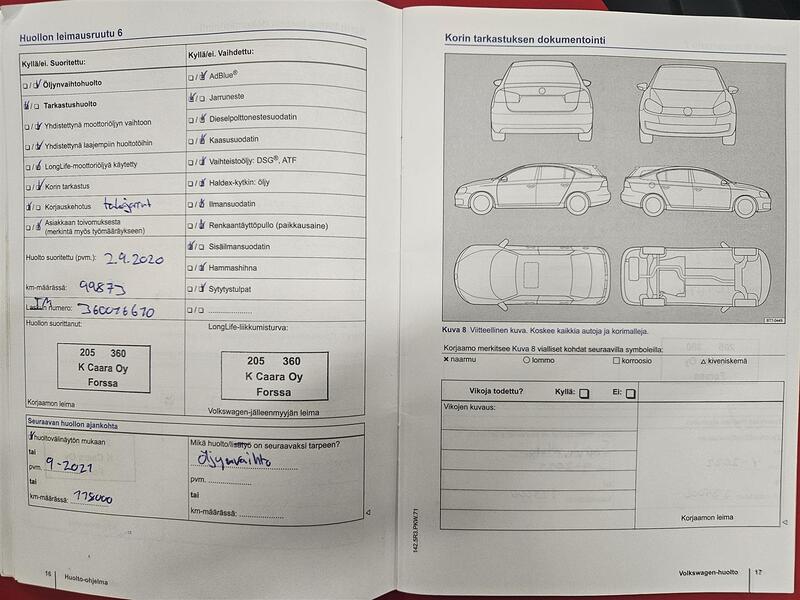 Huollon leimausruutu 6
Kyllä/ei. Suoritettu:
Öljynvaihtohuolto
Tarkastushuolto
Yhdistettynä moottoriöljyn vaihtoon
Yhdistettynä laajempiin huoltotöihin
LongLife-moottoriöljyä käytetty
Korin tarkastus
Korjauskehotus takajarrut
Asiakkaan toivomuksesta
(merkintä myös työmääräykseen)
Huolto suoritettu (pvm.): 2.9.2020
km-määrässä: 99873
numero: 360016610
Huollon suorittanut:
205 360
K Caara Oy
Forssa
Korjaamon leima
Kyllä/ei. Vaihdettu:
AdBlue®
Jarruneste
Dieselpolttonestesuodatin
Kaasusuodatin
Vaihteistoöljy: DSG®, ATF
Haldex-kytkin: öljy
Ilmansuodatin
Renkaantäyttöpullo (paikkausaine)
Sisäilmansuodatin
Hammashihna
Sytytystulpat
LongLife-liikkumisturva:
205 360
K Caara Oy
Forssa
Volkswagen-jälleenmyyjän leima
Seuraavan huollon ajankohta
huoltovälinäytön mukaan
tai
pvm. 9-2021
tai
km-määrässä: 115000
Mikä huolto/lisätyö on seuraavaksi tarpeen?
Öljynvaihto
pvm.
tai
km-määrässä:
16 Huolto-ohjelma
Korin tarkastuksen dokumentointi
Kuva 8 Viitteellinen kuva. Koskee kaikkia autoja ja korimalleja.
Korjaamo merkitsee Kuva 8 vialliset kohdat seuraavilla symboleilla:
naarmu lommo korroosio kiveniskemä
Vikoja todettu? Kyllä: Ei:
Vikojen kuvaus:
Korjaamon leima
142.5R3.PKW.71
Volkswagen-huolto 17